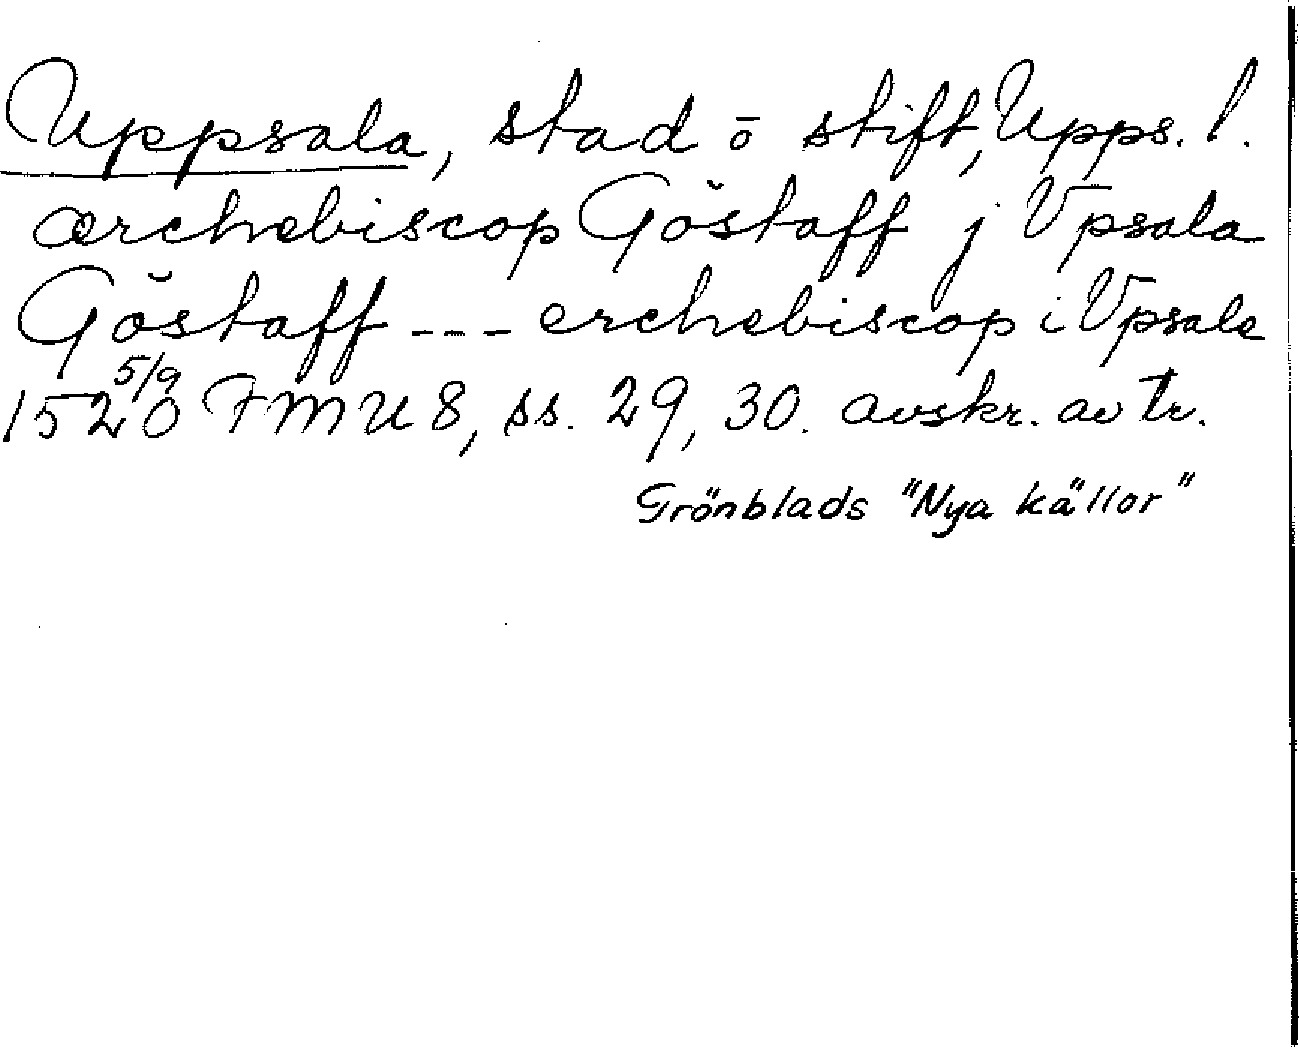 Uppsala, stad o stift, Upps. l.
ærchebiscop Göstaff j Vpsala
Göstaff --- erchebiscop i Vpsale
1520 5/9 FMU 8, ss. 29, 30. avskr. av tr.
Grönblads "Nya källor"